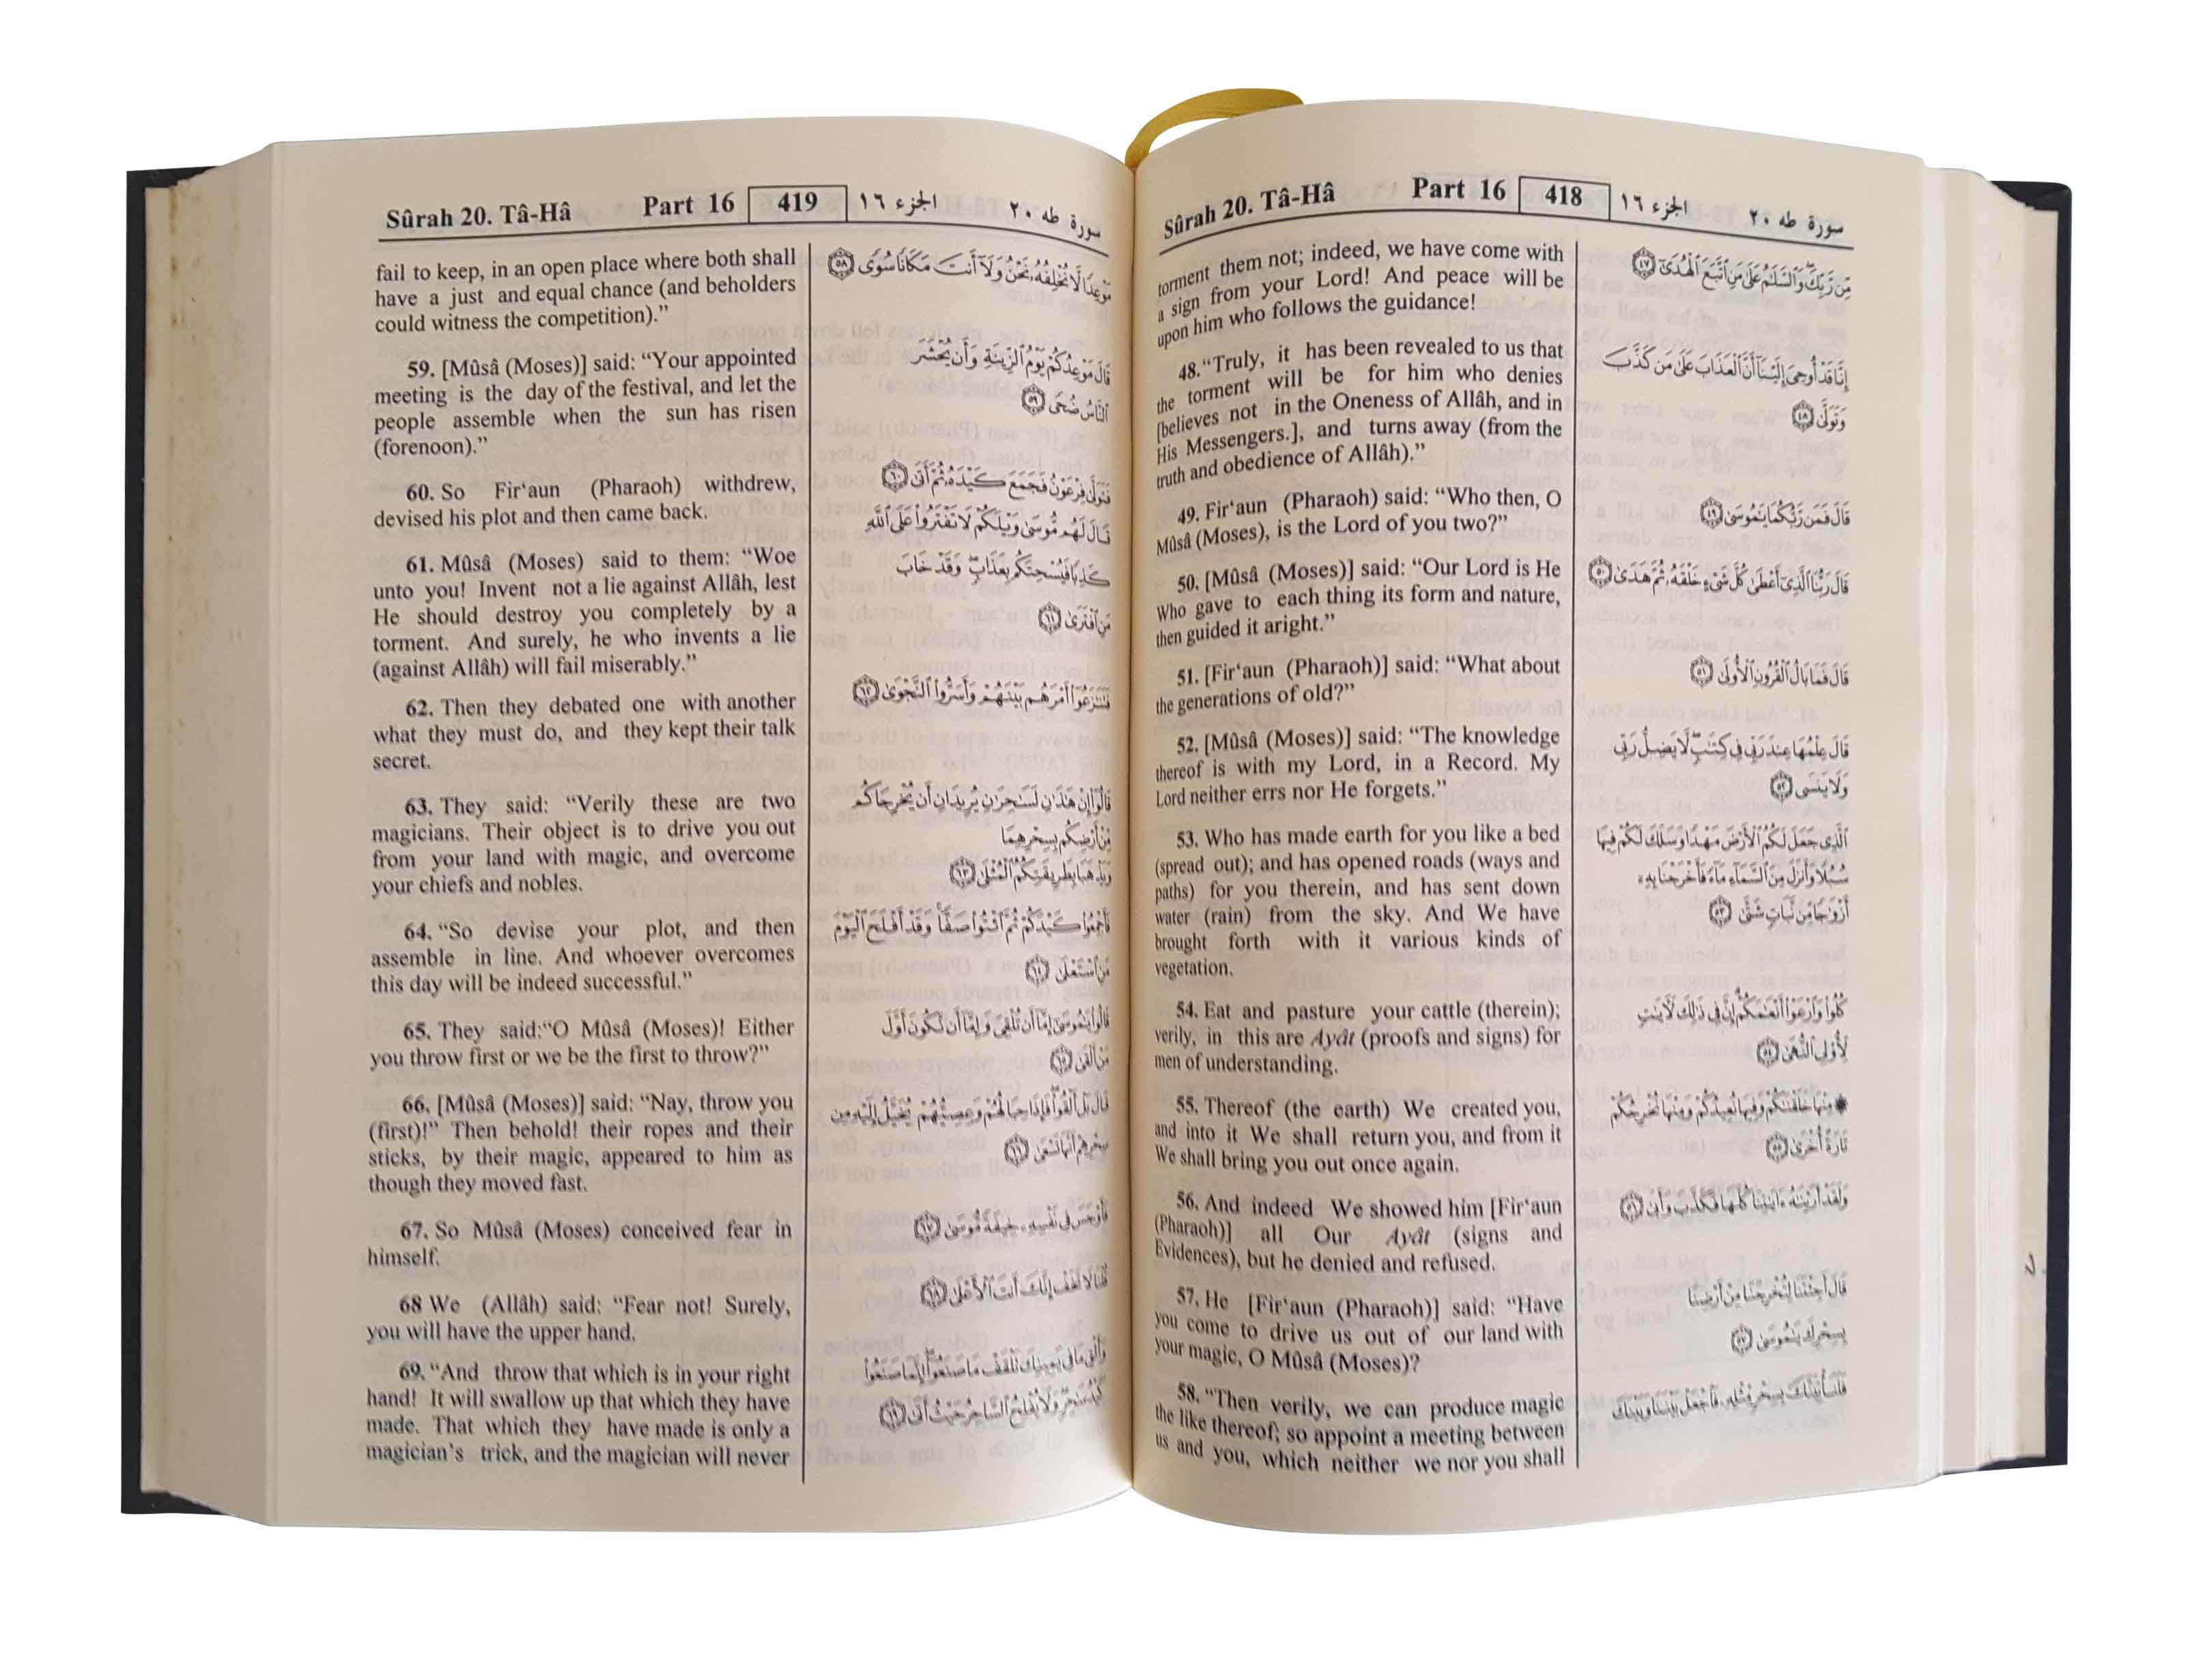 Sûrah 20. Tâ-Hâ Part 16 418 الجزء ١٦ سورة طه ٢٠
torment them not; indeed, we have come with
a sign from your Lord! And peace will be
upon him who follows the guidance!
48. “Truly, it has been revealed to us that
the torment will be for him who denies
[believes not in the Oneness of Allâh, and in
His Messengers.], and turns away (from the
truth and obedience of Allâh).”
49. Fir‘aun (Pharaoh) said: “Who then, O
Mûsâ (Moses), is the Lord of you two?”
50. [Mûsâ (Moses)] said: “Our Lord is He
Who gave to each thing its form and nature,
then guided it aright.”
51. [Fir‘aun (Pharaoh)] said: “What about
the generations of old?”
52. [Mûsâ (Moses)] said: “The knowledge
thereof is with my Lord, in a Record. My
Lord neither errs nor He forgets.”
53. Who has made earth for you like a bed
(spread out); and has opened roads (ways and
paths) for you therein, and has sent down
water (rain) from the sky. And We have
brought forth with it various kinds of
vegetation.
54. Eat and pasture your cattle (therein);
verily, in this are Ayât (proofs and signs) for
men of understanding.
55. Thereof (the earth) We created you,
and into it We shall return you, and from it
We shall bring you out once again.
56. And indeed We showed him [Fir‘aun
(Pharaoh)] all Our Ayât (signs and
Evidences), but he denied and refused.
57. He [Fir‘aun (Pharaoh)] said: “Have
you come to drive us out of our land with
your magic, O Mûsâ (Moses)?
58. “Then verily, we can produce magic
the like thereof; so appoint a meeting between
us and you, which neither we nor you shall
مِّن رَّبِّكَ وَٱلسَّلَٰمُ عَلَىٰ مَنِ ٱتَّبَعَ ٱلْهُدَىٰٓ ٤٧
إِنَّا قَدْ أُوحِىَ إِلَيْنَآ أَنَّ ٱلْعَذَابَ عَلَىٰ مَن كَذَّبَ
وَتَوَلَّىٰ ٤٨
قَالَ فَمَن رَّبُّكُمَا يَٰمُوسَىٰ ٤٩
قَالَ رَبُّنَا ٱلَّذِىٓ أَعْطَىٰ كُلَّ شَىْءٍ خَلْقَهُۥ ثُمَّ هَدَىٰ ٥٠
قَالَ فَمَا بَالُ ٱلْقُرُونِ ٱلْأُولَىٰ ٥١
قَالَ عِلْمُهَا عِندَ رَبِّى فِى كِتَٰبٍ لَّا يَضِلُّ رَبِّى
وَلَا يَنسَى ٥٢
ٱلَّذِى جَعَلَ لَكُمُ ٱلْأَرْضَ مَهْدًا وَسَلَكَ لَكُمْ فِيهَا
سُبُلًا وَأَنزَلَ مِنَ ٱلسَّمَآءِ مَآءً فَأَخْرَجْنَا بِهِۦٓ
أَزْوَٰجًا مِّن نَّبَاتٍ شَتَّىٰ ٥٣
كُلُوا۟ وَٱرْعَوْا۟ أَنْعَٰمَكُمْ إِنَّ فِى ذَٰلِكَ لَءَايَٰتٍ
لِّأُو۟لِى ٱلنُّهَىٰ ٥٤
مِنْهَا خَلَقْنَٰكُمْ وَفِيهَا نُعِيدُكُمْ وَمِنْهَا نُخْرِجُكُمْ
تَارَةً أُخْرَىٰ ٥٥
وَلَقَدْ أَرَيْنَٰهُ ءَايَٰتِنَا كُلَّهَا فَكَذَّبَ وَأَبَىٰ ٥٦
قَالَ أَجِئْتَنَا لِتُخْرِجَنَا مِنْ أَرْضِنَا
بِسِحْرِكَ يَٰمُوسَىٰ ٥٧
فَلَنَأْتِيَنَّكَ بِسِحْرٍ مِّثْلِهِۦ فَٱجْعَلْ بَيْنَنَا وَبَيْنَكَ
Sûrah 20. Tâ-Hâ Part 16 419 الجزء ١٦ سورة طه ٢٠
fail to keep, in an open place where both shall
have a just and equal chance (and beholders
could witness the competition).”
59. [Mûsâ (Moses)] said: “Your appointed
meeting is the day of the festival, and let the
people assemble when the sun has risen
(forenoon).”
60. So Fir‘aun (Pharaoh) withdrew,
devised his plot and then came back.
61. Mûsâ (Moses) said to them: “Woe
unto you! Invent not a lie against Allâh, lest
He should destroy you completely by a
torment. And surely, he who invents a lie
(against Allâh) will fail miserably.”
62. Then they debated one with another
what they must do, and they kept their talk
secret.
63. They said: “Verily these are two
magicians. Their object is to drive you out
from your land with magic, and overcome
your chiefs and nobles.
64. “So devise your plot, and then
assemble in line. And whoever overcomes
this day will be indeed successful.”
65. They said:“O Mûsâ (Moses)! Either
you throw first or we be the first to throw?”
66. [Mûsâ (Moses)] said: “Nay, throw you
(first)!” Then behold! their ropes and their
sticks, by their magic, appeared to him as
though they moved fast.
67. So Mûsâ (Moses) conceived fear in
himself.
68 We (Allâh) said: “Fear not! Surely,
you will have the upper hand.
69. “And throw that which is in your right
hand! It will swallow up that which they have
made. That which they have made is only a
magician’s trick, and the magician will never
مَوْعِدًا لَّا نُخْلِفُهُۥ نَحْنُ وَلَآ أَنتَ مَكَانًا سُوًى ٥٨
قَالَ مَوْعِدُكُمْ يَوْمُ ٱلزِّينَةِ وَأَن يُحْشَرَ
ٱلنَّاسُ ضُحًى ٥٩
فَتَوَلَّىٰ فِرْعَوْنُ فَجَمَعَ كَيْدَهُۥ ثُمَّ أَتَىٰ ٦٠
قَالَ لَهُم مُّوسَىٰ وَيْلَكُمْ لَا تَفْتَرُوا۟ عَلَى ٱللَّهِ
كَذِبًا فَيُسْحِتَكُم بِعَذَابٍ وَقَدْ خَابَ
مَنِ ٱفْتَرَىٰ ٦١
فَتَنَٰزَعُوٓا۟ أَمْرَهُم بَيْنَهُمْ وَأَسَرُّوا۟ ٱلنَّجْوَىٰ ٦٢
قَالُوٓا۟ إِنْ هَٰذَٰنِ لَسَٰحِرَٰنِ يُرِيدَانِ أَن يُخْرِجَاكُم
مِّنْ أَرْضِكُم بِسِحْرِهِمَا
وَيَذْهَبَا بِطَرِيقَتِكُمُ ٱلْمُثْلَىٰ ٦٣
فَأَجْمِعُوا۟ كَيْدَكُمْ ثُمَّ ٱئْتُوا۟ صَفًّا وَقَدْ أَفْلَحَ ٱلْيَوْمَ
مَنِ ٱسْتَعْلَىٰ ٦٤
قَالُوا۟ يَٰمُوسَىٰٓ إِمَّآ أَن تُلْقِىَ وَإِمَّآ أَن نَّكُونَ أَوَّلَ
مَنْ أَلْقَىٰ ٦٥
قَالَ بَلْ أَلْقُوا۟ فَإِذَا حِبَالُهُمْ وَعِصِيُّهُمْ يُخَيَّلُ إِلَيْهِ مِن
سِحْرِهِمْ أَنَّهَا تَسْعَىٰ ٦٦
فَأَوْجَسَ فِى نَفْسِهِۦ خِيفَةً مُّوسَىٰ ٦٧
قُلْنَا لَا تَخَفْ إِنَّكَ أَنتَ ٱلْأَعْلَىٰ ٦٨
وَأَلْقِ مَا فِى يَمِينِكَ تَلْقَفْ مَا صَنَعُوٓا۟ إِنَّمَا صَنَعُوا۟
كَيْدُ سَٰحِرٍ وَلَا يُفْلِحُ ٱلسَّاحِرُ حَيْثُ أَتَىٰ ٦٩